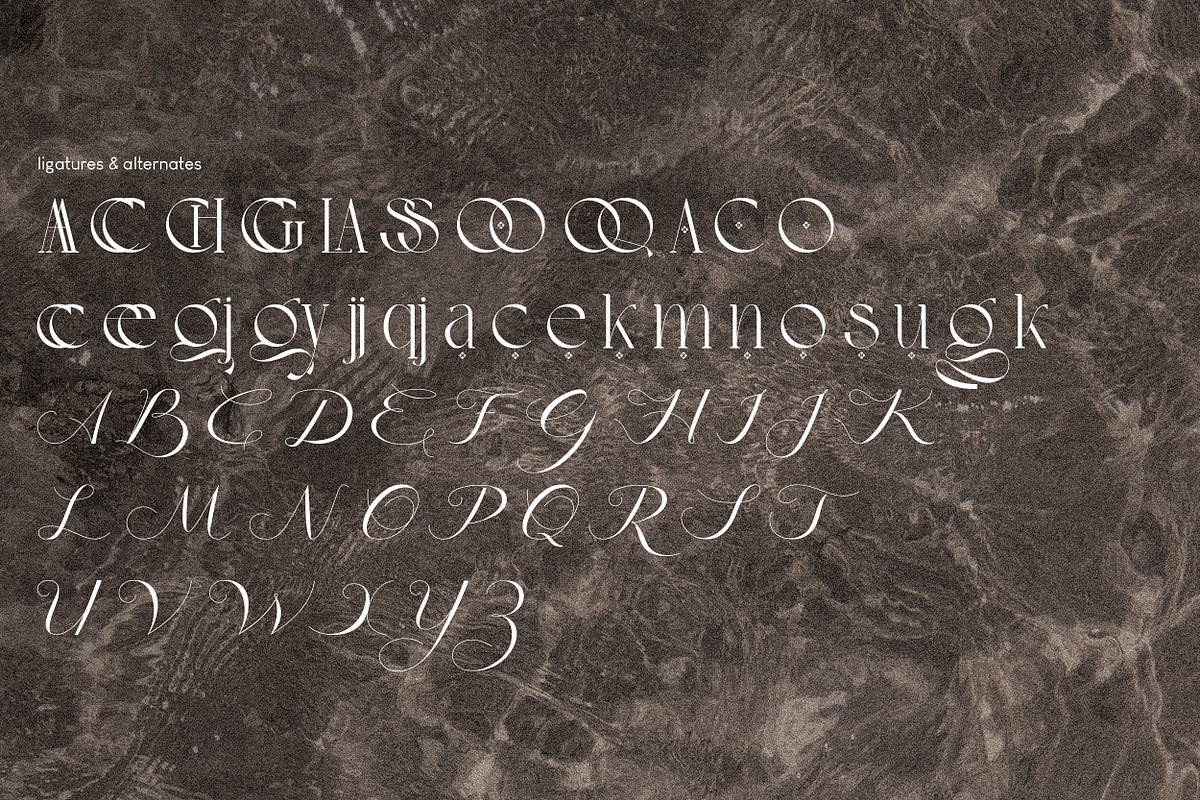 ligatures & alternates
AA CC CH GG LA SS OO OQ A C O
cc ce gj gy jj qj a c e k m n o s u g k
A B C D E F G H I J K
L M N O P Q R S T
U V W X Y Z